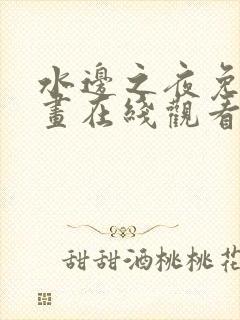 水邊之夜免
畫在綫觀看
甜甜酒桃桃花